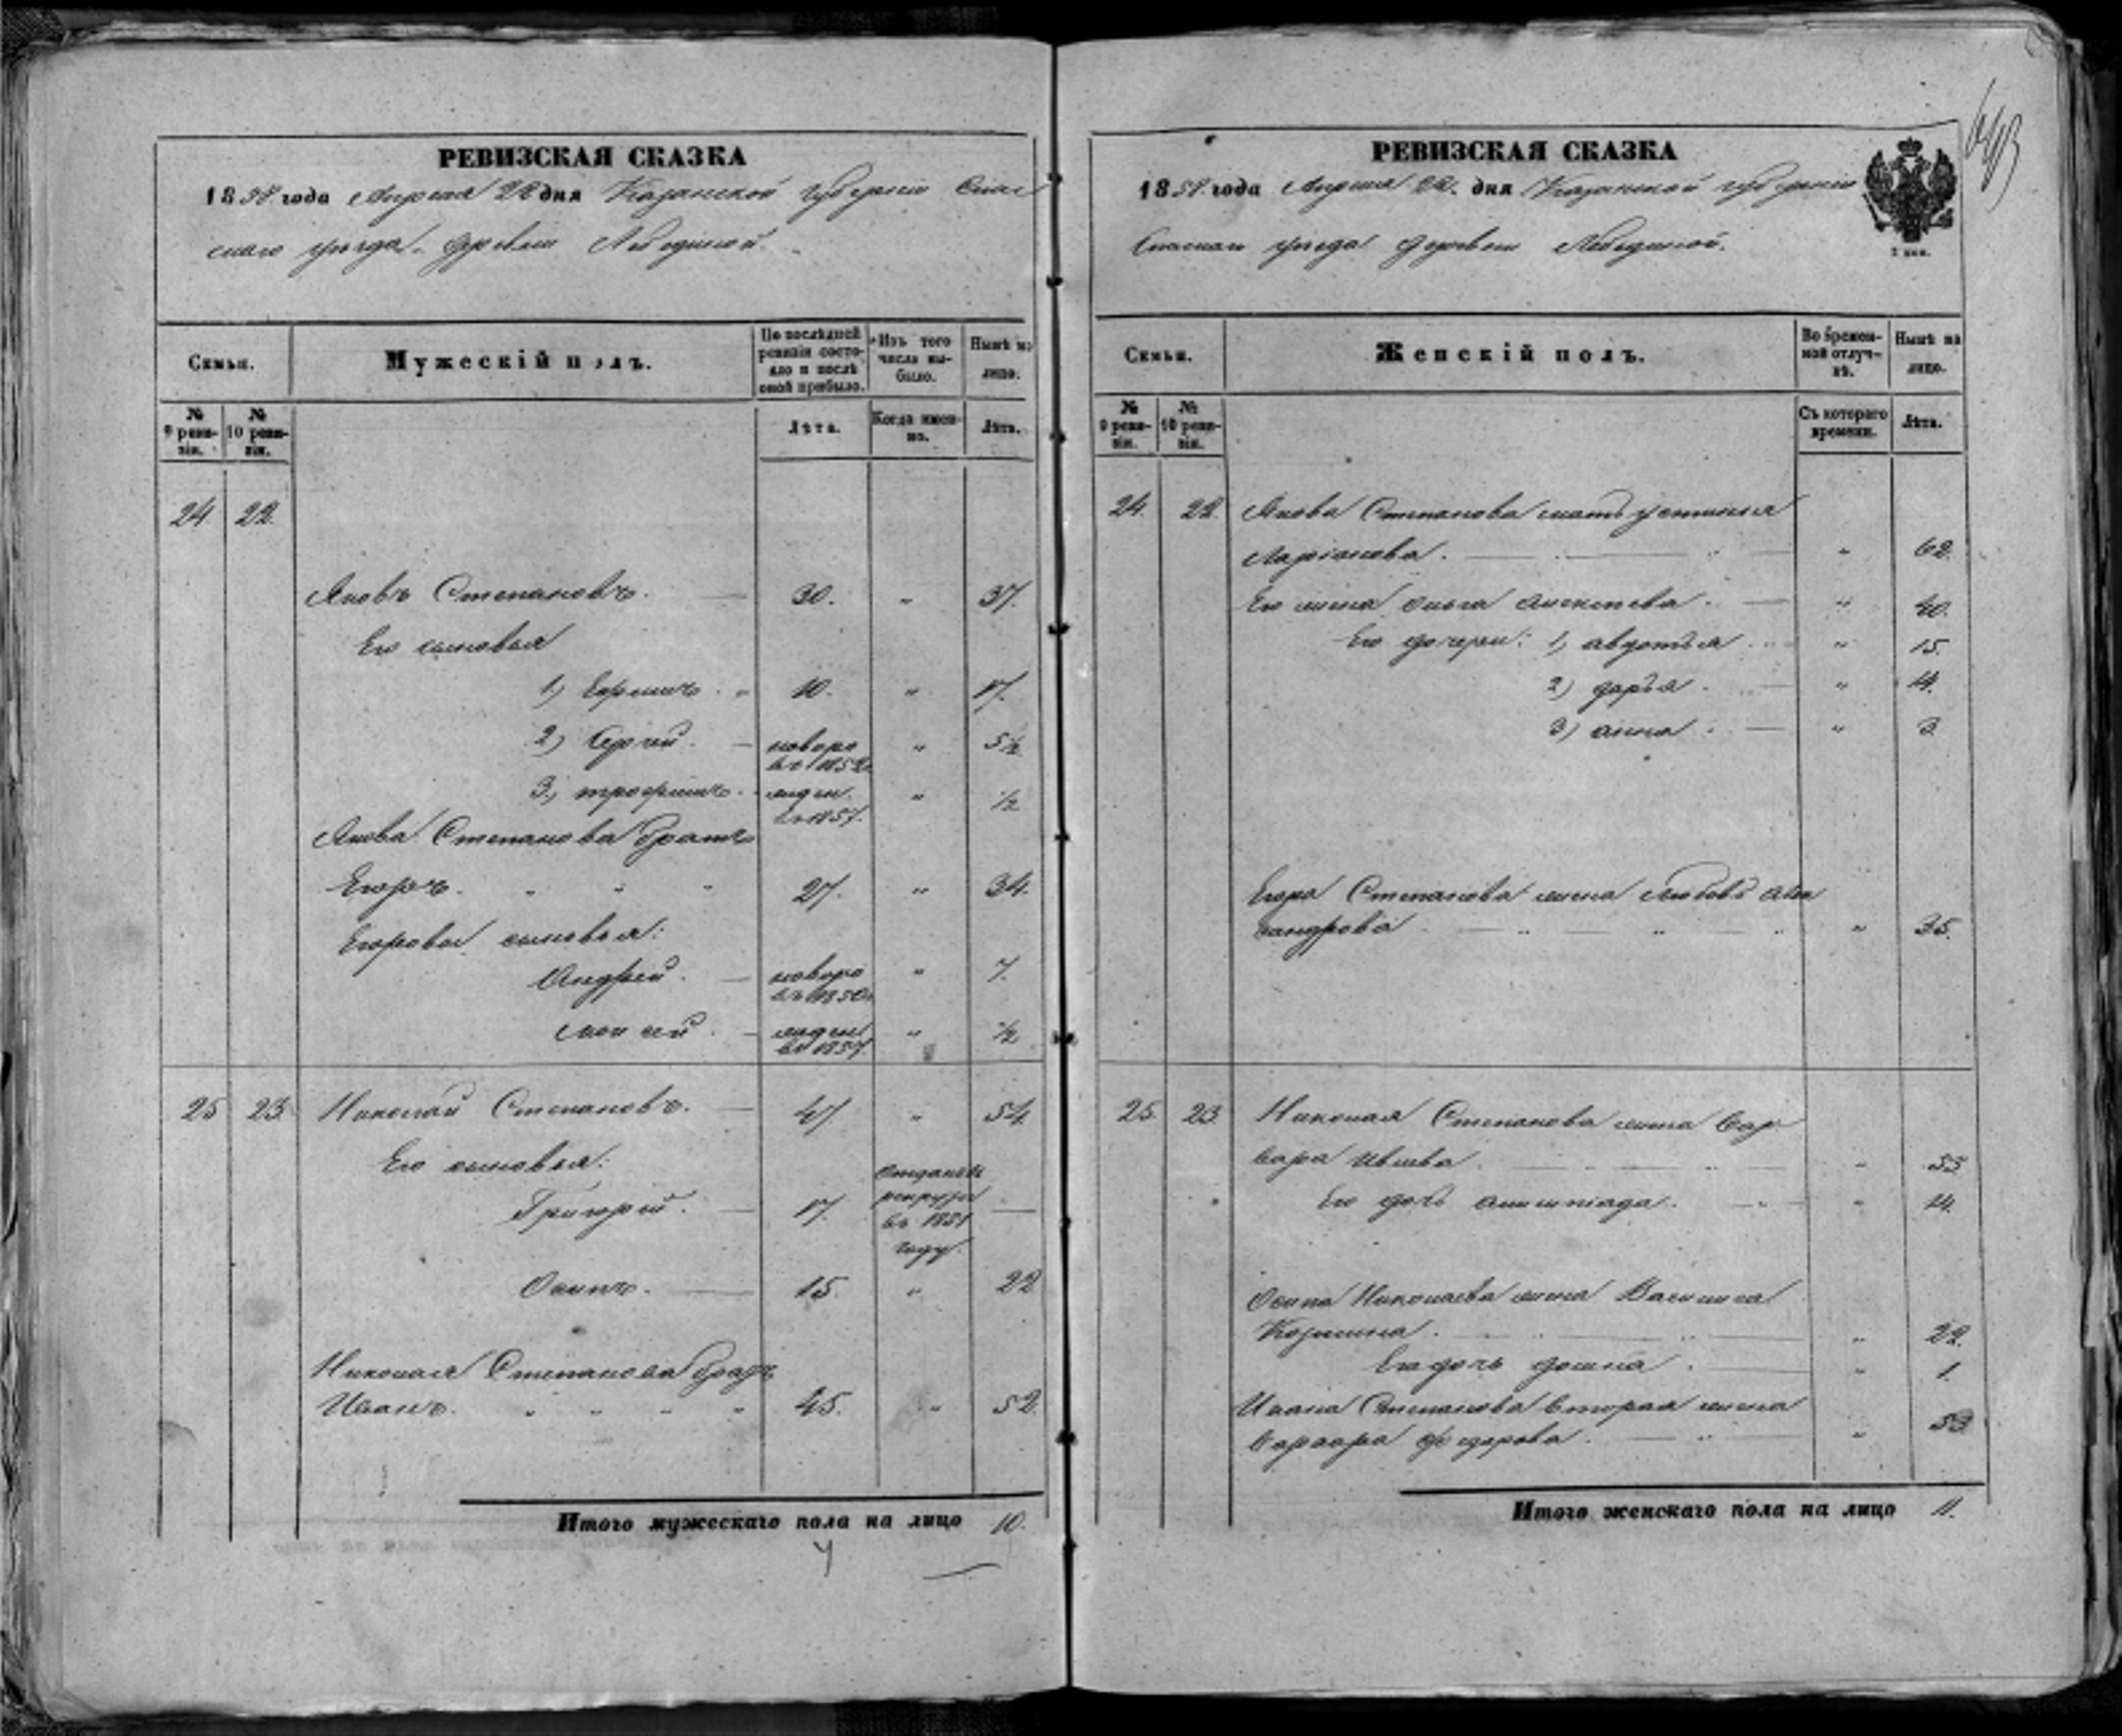 РЕВИЗСКАЯ СКАЗКА
1858 года Апреля 22 дня Казанской губерніи Спас
скаго уезда деревни Лебединой.
Семьи.
Мужескій полъ.
По послѣдней ревизіи состояло и послѣ оной прибыло.
Изъ того числа выбыло.
Нынѣ на лицо.
№ 9 ревизіи.
№ 10 ревизіи.
Лѣта.
Когда именно.
Лѣта.
24 22
Яковъ Степановъ. 30. " 37.
Его сыновья
1) Ефимъ. " 10. " 17.
2) Сергей. новоро " 5½
въ 1852
3) трофимъ. " ½
въ 1857.
Якова Степанова братъ
Егоръ. " " " 27. " 34.
Егоровы сыновья:
Андрей. новоро " 7.
въ 1850
моисей. " ½
въ 1857
25 23 Николай Степановъ. 47 " 54.
Его сыновья:
Григорій. 17. отданъ въ рекруты въ 1851 году. —
Осипъ. 15. " 22
Николая Степанова братъ
Иванъ. " " " " 45. " 52.
Итого мужескаго пола на лицо 10.
643
РЕВИЗСКАЯ СКАЗКА
1858 года Апреля 22. дня Казанской губерніи
Спаскаго уезда деревни Лебединой.
Семьи.
Женскій полъ.
Во временной отлучкѣ.
Нынѣ на лицо.
№ 9 ревизіи.
№ 10 ревизіи.
Съ котораго времени.
Лѣта.
24. 22. Якова Степанова мать устинья
Ларіонова. " 62.
Его жена ольга алексеева. " 40.
Его дочери: 1) авдотья " 15.
2) дарья. "
3) анна. " 3
Егора Степанова жена Любовь алек
сандрова " 35.
25. 23. Николая Степанова жена Вар
вара " 55
Его дочь "
Осипа Николаева жена Василиса
Козмина. " 22.
Его дочь домна. " 1.
Ивана Степанова вторая жена
варвара федорова. " 53
Итого женскаго пола на лицо 11.